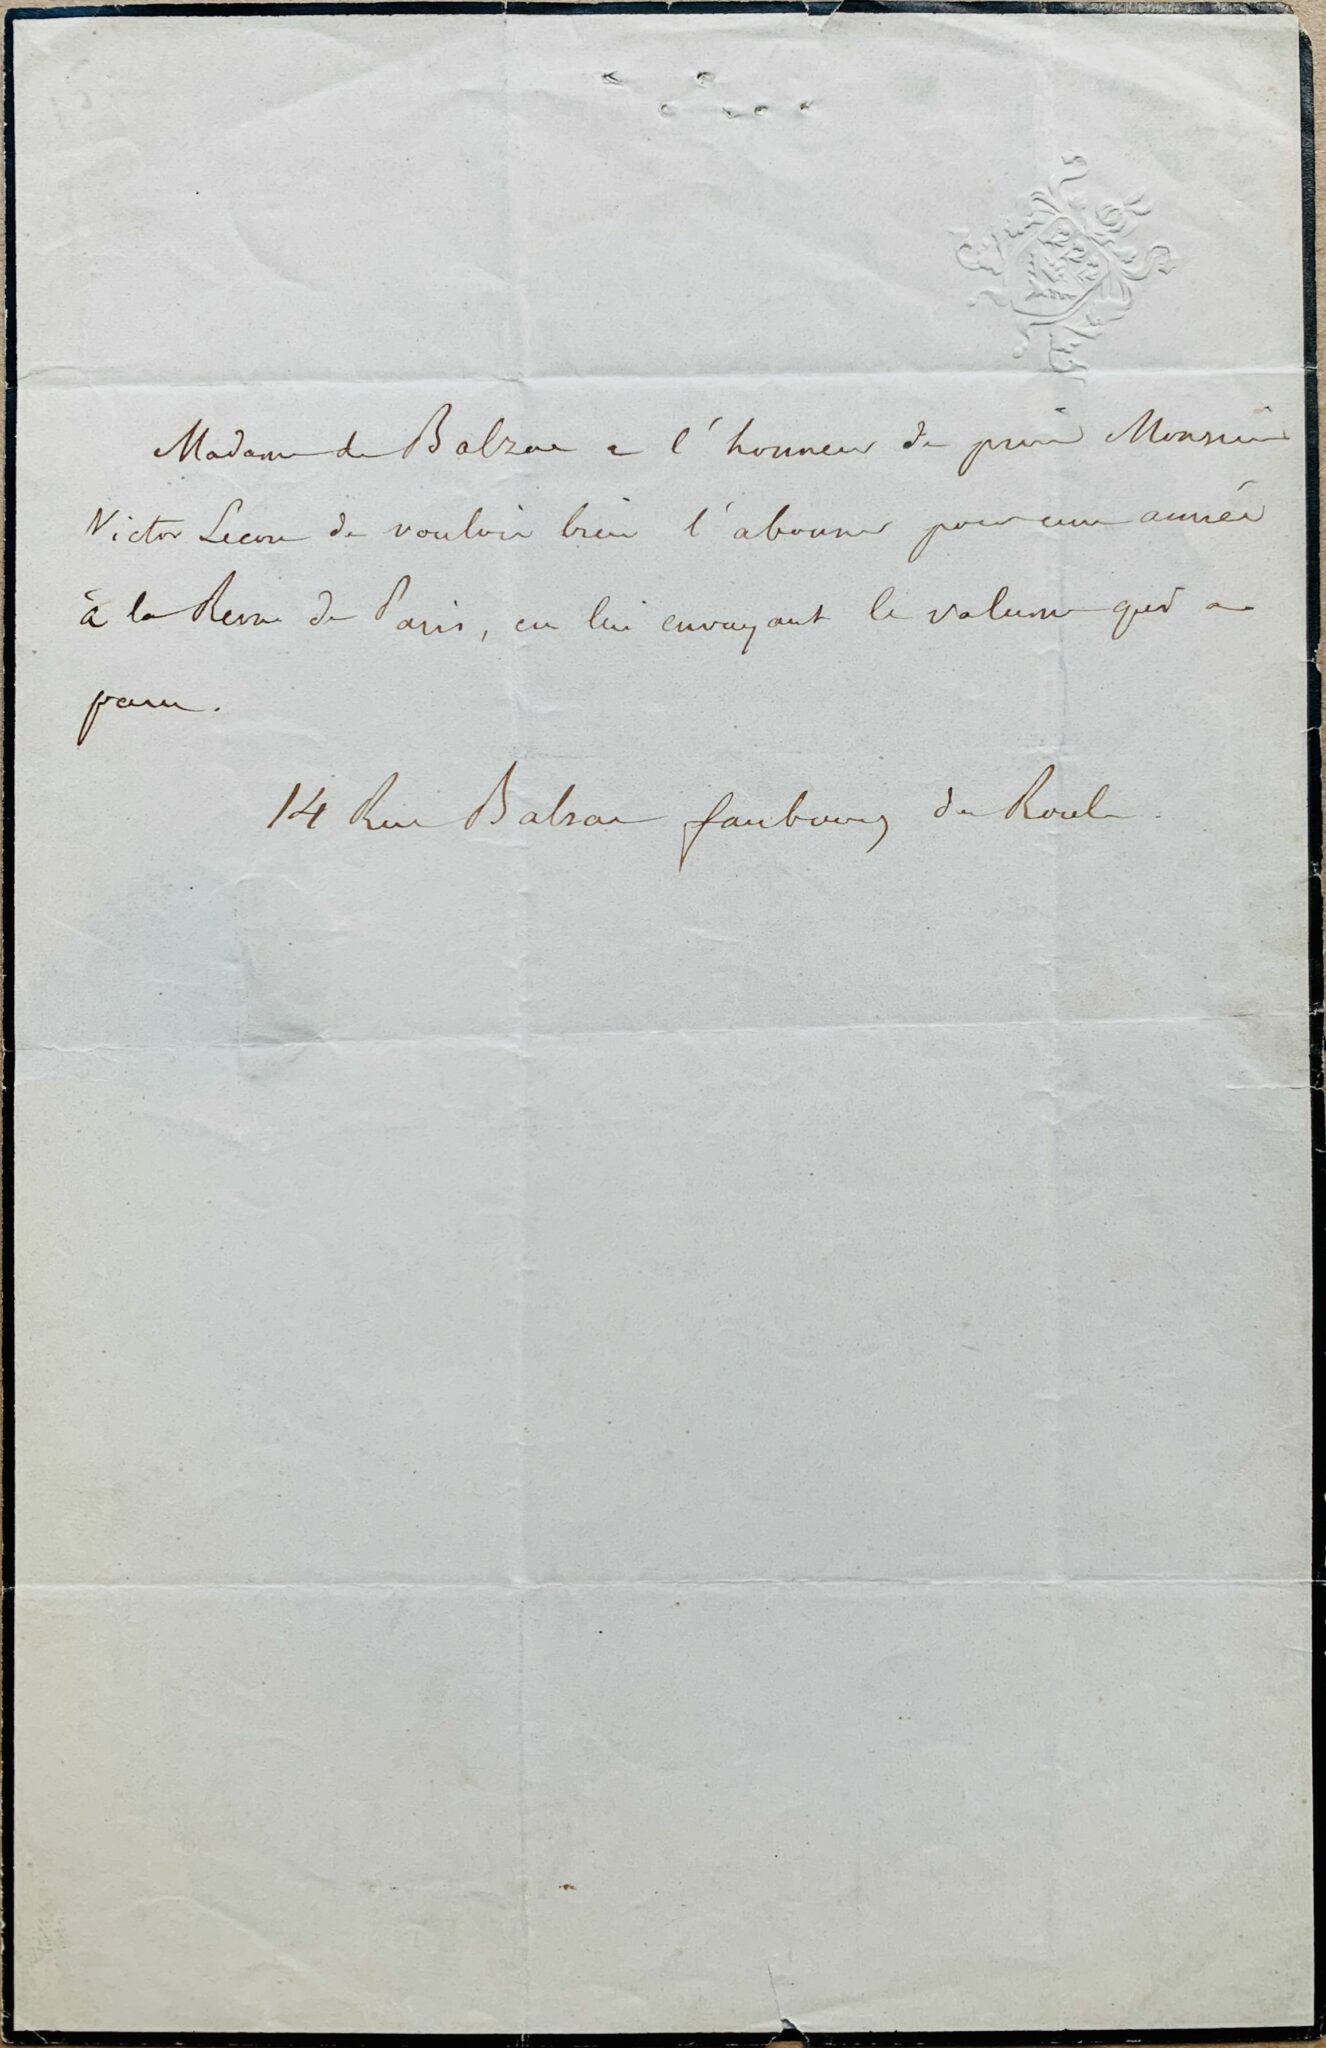 Madame de Balzac a l'honneur de prier Monsieur
Victor Lecou de vouloir bien l'abonner pour une année
à la Revue de Paris, en lui envoyant le volume qui a
paru.
14 Rue Balzac faubourg du Roule.